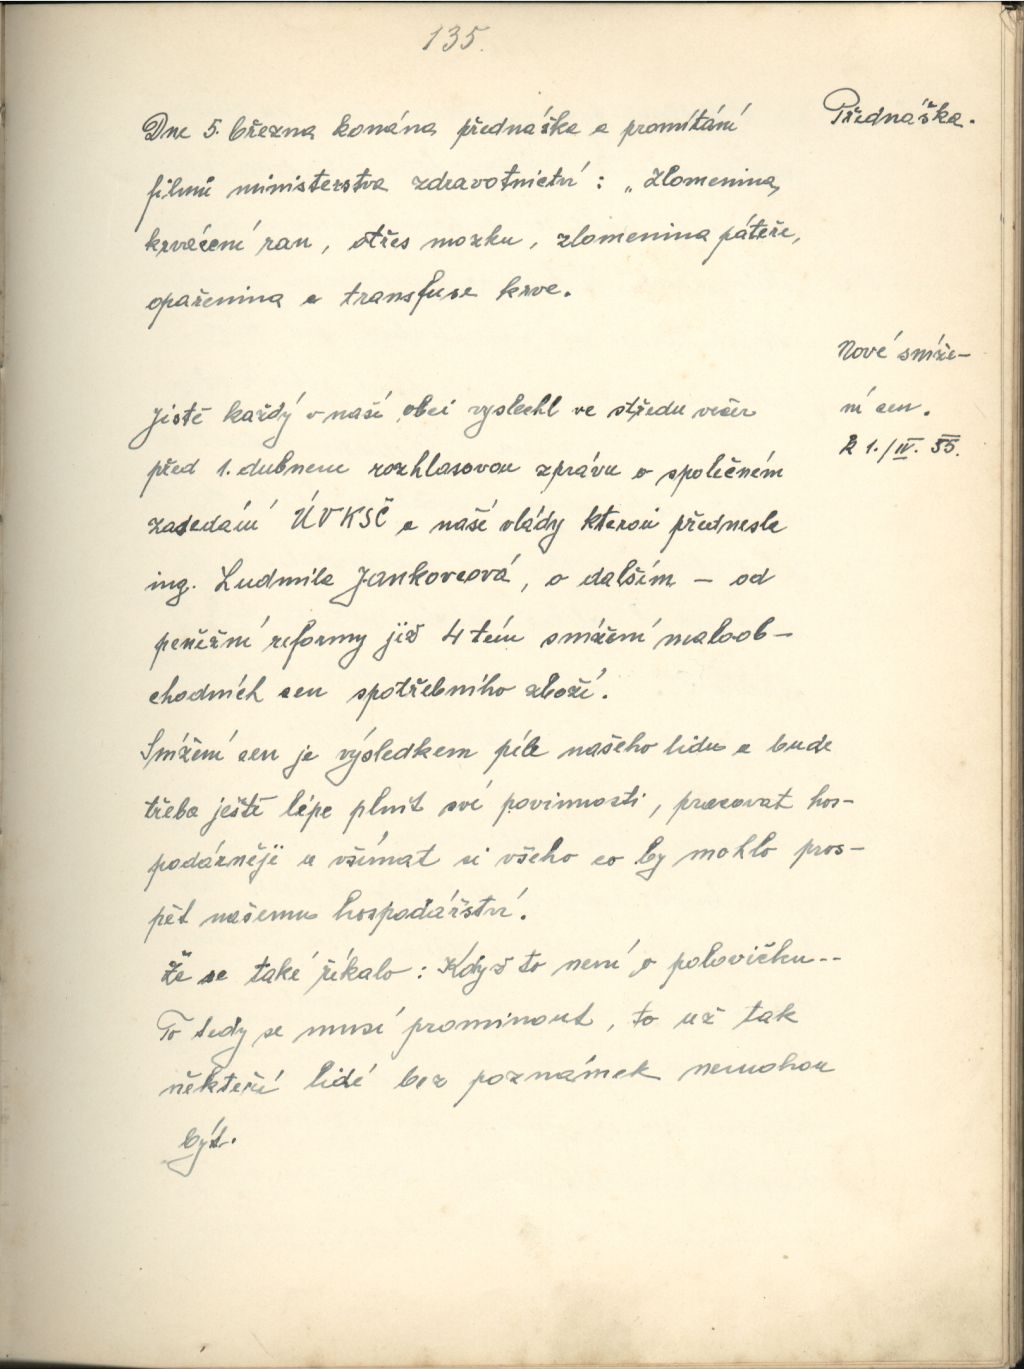 135.
Přednáška.
Dne 5. března konána přednáška a promítání
filmů ministerstva zdravotnictví: „Zlomenina,
krvácení ran, otřes mozku, zlomenina páteře,
opařenina a transfuse krve.
Nové sníže-
ní cen.
k 1./IV. 55.
Jistě každý v naší obci vyslechl ve středu večer
před 1. dubnem rozhlasovou zprávu o společném
zasedání ÚVKSČ a naší vlády kterou přednesla
ing. Ludmila Jankovcová, o dalším - od
peněžní reformy již 4 tém snížení maloob-
chodních cen spotřebního zboží.
Snížení cen je výsledkem píle našeho lidu a bude
třeba ještě lépe plnit své povinnosti, pracovat hos-
podárněji a všímat si všeho co by mohlo pros-
pět našemu hospodářství.
Že se také říkalo: Když to není o polovičku--
To tedy se musí prominout, to už tak
někteří lidé bez poznámek nemohou
být.